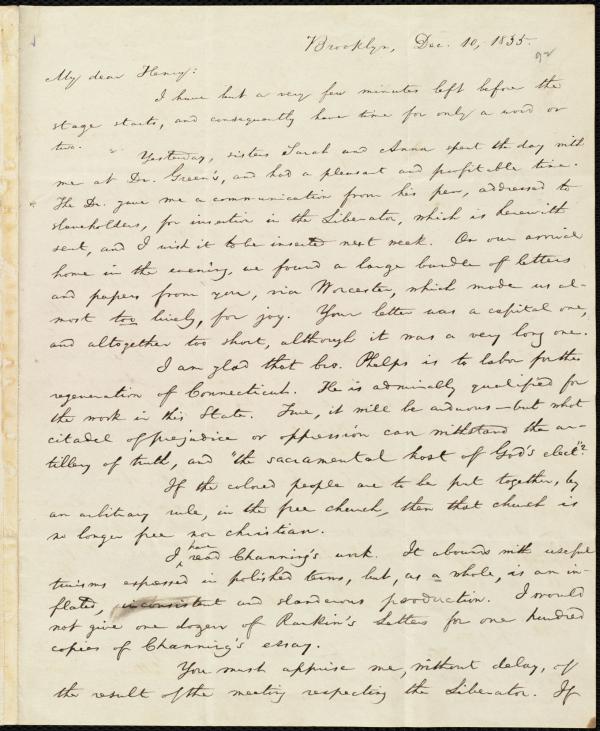 Brooklyn, Dec. 10, 1835.
92
My dear Henry:
I have but a very few minutes left before the
stage starts, and consequently have time for only a word or
two.
Yesterday, sisters Sarah and Anna spent the day with
me at Dr. Green's, and had a pleasant and profitable time.
The Dr. gave me a communication from his pen, addressed to
slaveholders, for insertion in the Liberator, which is herewith
sent, and I wish it to be inserted next week. On our arrival
home in the evening, we found a large bundle of letters
and papers from you, via Worcester, which made us al-
most too lively, for joy. Your letter was a capital one,
and altogether too short, although it was a very long one.
I am glad that bro. Phelps is to labor for the
regeneration of Connecticut. He is admirably qualified for
the work in this State. True, it will be arduous—but what
citadel of prejudice or oppression can withstand the ar-
tillery of truth, and "the sacramental host of God's elect"?
If the colored people are to be put together, by
an arbitrary rule, in the free church, then that church is
no longer free nor christian.
I have read Channing's work. It abounds with useful
truisms expressed in polished terms, but, as a whole, is an in-
flated, inconsistent and slanderous production. I would
not give one dozen of Rankin's Letters for one hundred
copies of Channing's essay.
You must apprise me, without delay, of
the result of the meeting respecting the Liberator. If